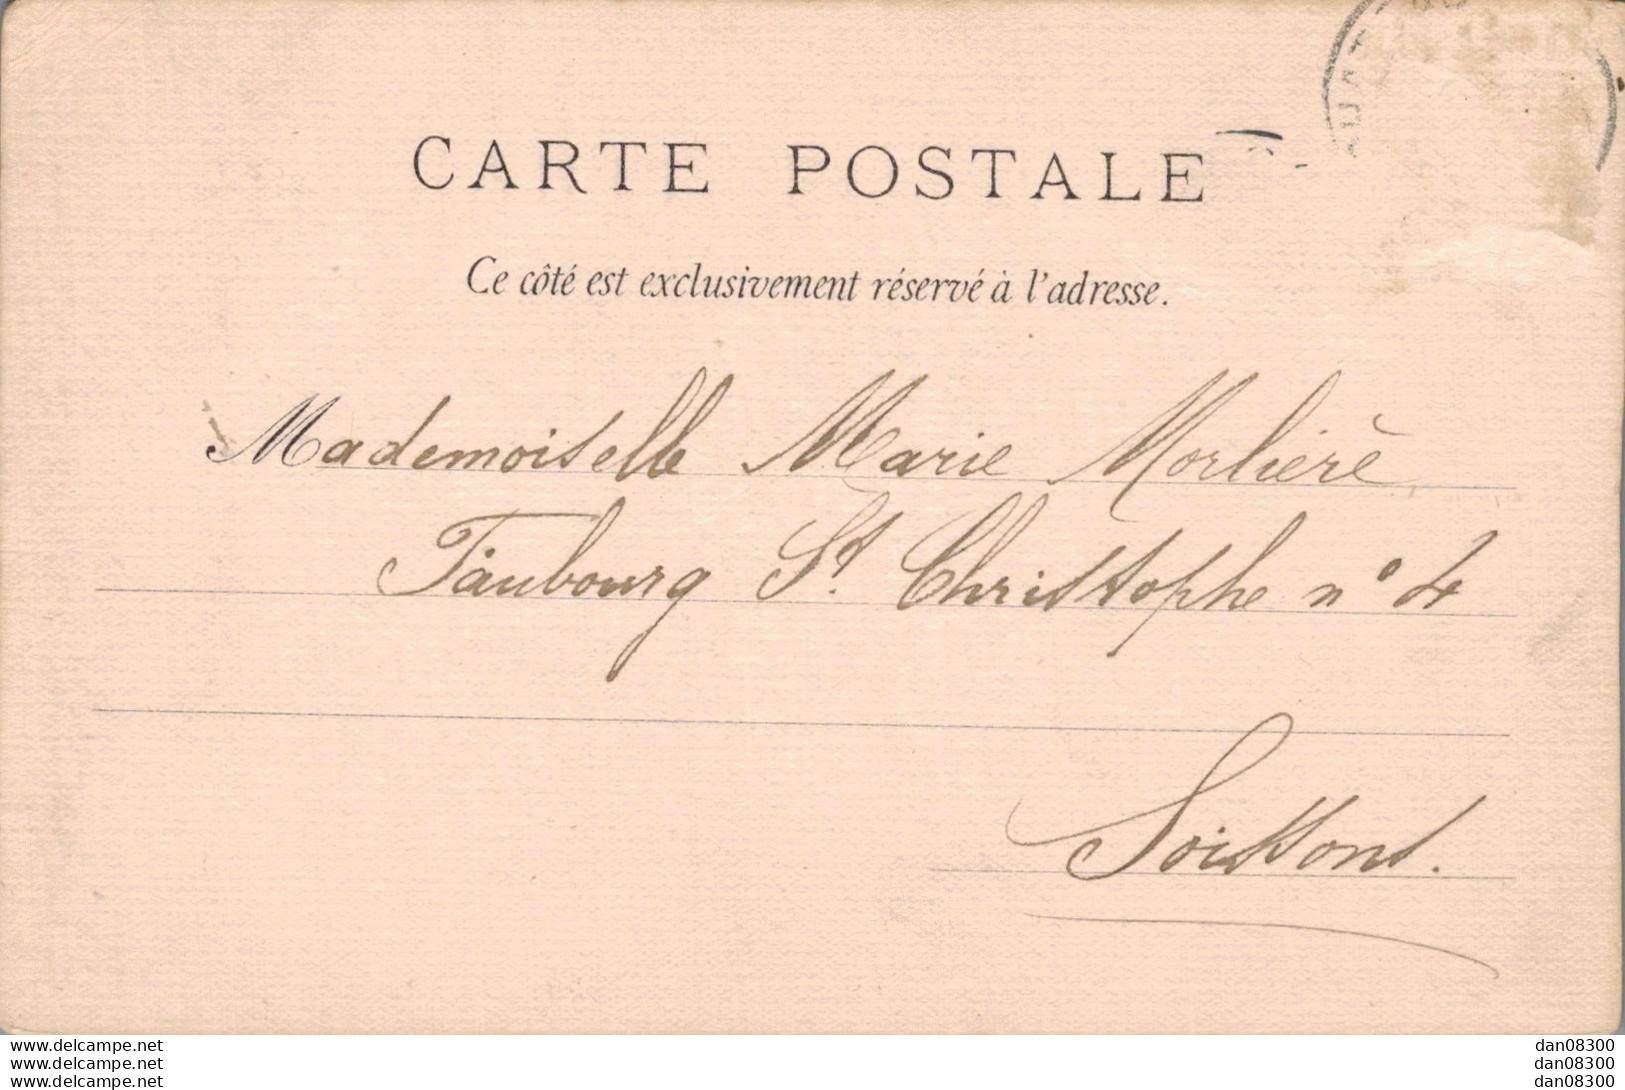 CARTE POSTALE
Ce côté est exclusivement réservé à l'adresse.
Mademoiselle Marie Morlière
Faubourg St. Christophe n° 4
Soissons.
www.delcampe.net dan08300
www.delcampe.net dan08300
www.delcampe.net dan08300